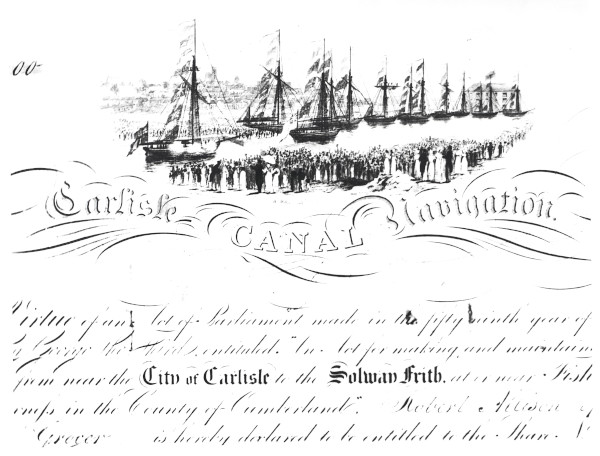 00
Carlisle
Navigation.
CANAL
Virtue of an Act of Parliament made in the fifty ninth year of
George the Third, entituled "An Act for making and maintain
from near the City of Carlisle to the Solway Frith, at or near Fish
in the County of Cumberland". Robert
Grocer is hereby declared to be entitled to the Share